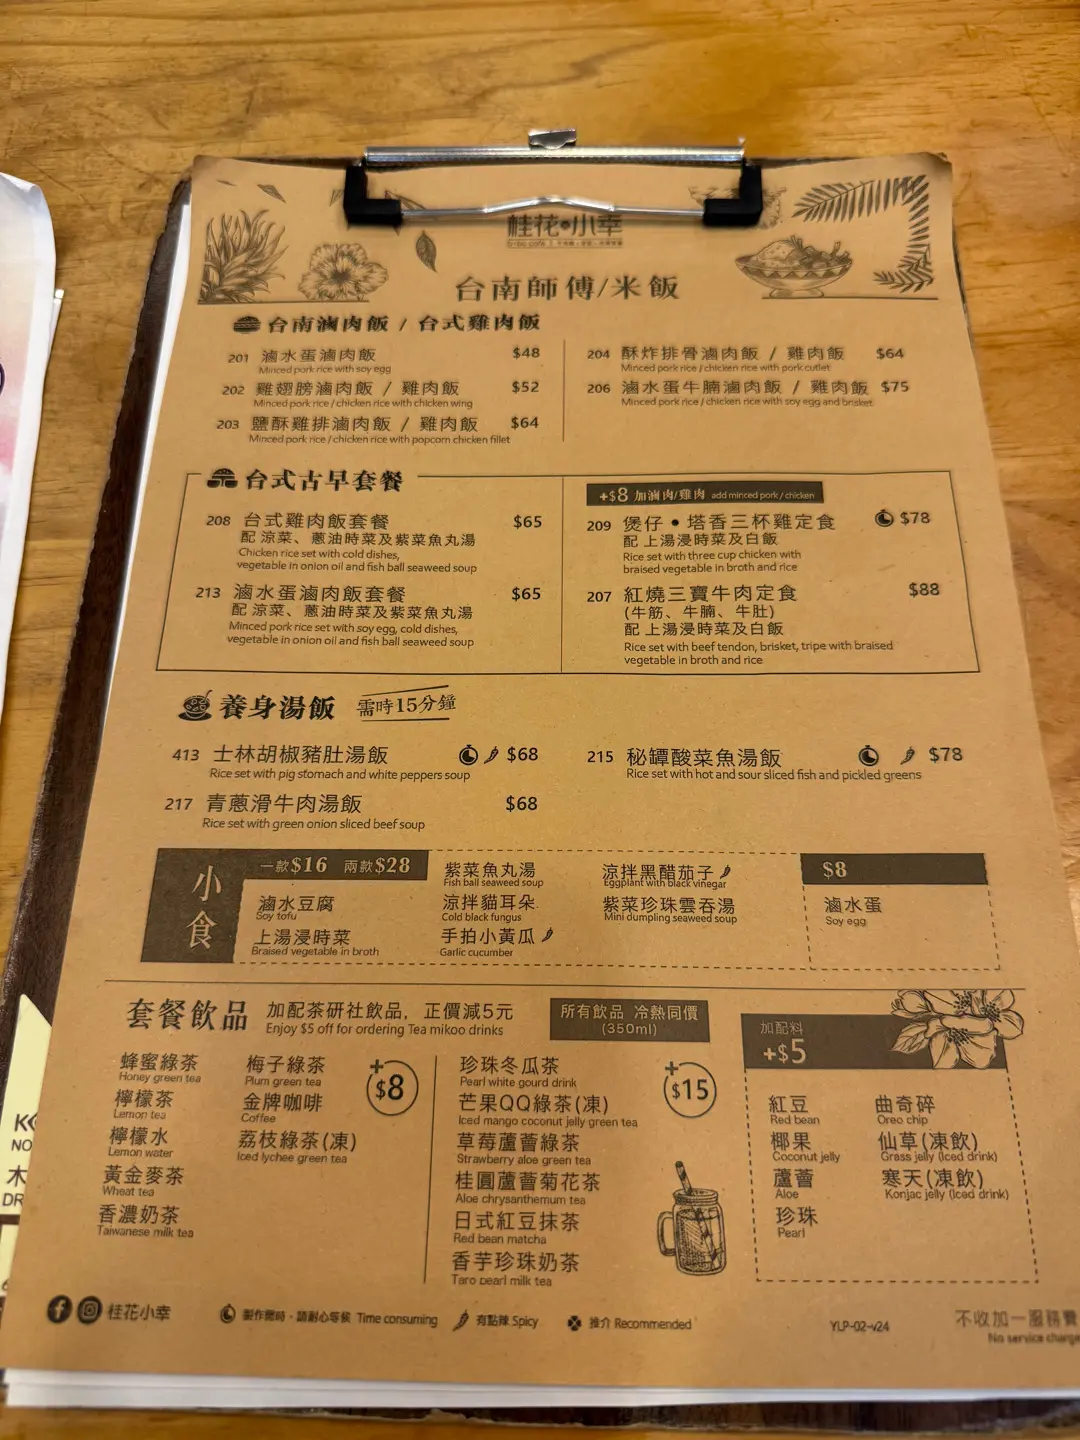 桂花小幸
台南師傅/米飯
台南滷肉飯 / 台式雞肉飯
201 滷水蛋滷肉飯 $48
Minced pork rice with soy egg
202 雞翅膀滷肉飯 / 雞肉飯 $52
Minced pork rice / chicken rice with chicken wing
203 鹽酥雞排滷肉飯 / 雞肉飯 $64
Minced pork rice / chicken rice with popcorn chicken fillet
204 酥炸排骨滷肉飯 / 雞肉飯 $64
Minced pork rice / chicken rice with pork cutlet
206 滷水蛋牛腩滷肉飯 / 雞肉飯 $75
Minced pork rice / chicken rice with soy egg and brisket
台式古早套餐
208 台式雞肉飯套餐 $65
配 涼菜、蔥油時菜及紫菜魚丸湯
Chicken rice set with cold dishes,
vegetable in onion oil and fish ball seaweed soup
213 滷水蛋滷肉飯套餐 $65
配 涼菜、蔥油時菜及紫菜魚丸湯
Minced pork rice set with soy egg, cold dishes,
vegetable in onion oil and fish ball seaweed soup
+$8 加滷肉/雞肉 add minced pork / chicken
209 煲仔•塔香三杯雞定食 $78
配 上湯浸時菜及白飯
Rice set with three cup chicken with
braised vegetable in broth and rice
207 紅燒三寶牛肉定食 $88
(牛筋、牛腩、牛肚)
配 上湯浸時菜及白飯
Rice set with beef tendon, brisket, tripe with braised
vegetable in broth and rice
養身湯飯 需時15分鐘
413 士林胡椒豬肚湯飯 $68
Rice set with pig stomach and white peppers soup
217 青蔥滑牛肉湯飯 $68
Rice set with green onion sliced beef soup
215 秘罈酸菜魚湯飯 $78
Rice set with hot and sour sliced fish and pickled greens
小食
一款$16 兩款$28
滷水豆腐
Soy tofu
上湯浸時菜
Braised vegetable in broth
紫菜魚丸湯
Fish ball seaweed soup
涼拌貓耳朵
Cold black fungus
手拍小黃瓜
Garlic cucumber
涼拌黑醋茄子
Eggplant with black vinegar
紫菜珍珠雲吞湯
Mini dumpling seaweed soup
$8
滷水蛋
Soy egg
套餐飲品
加配茶研社飲品, 正價減5元
Enjoy $5 off for ordering Tea mikoo drinks
所有飲品 冷熱同價
(350ml)
蜂蜜綠茶
Honey green tea
檸檬茶
Lemon tea
檸檬水
Lemon water
黃金麥茶
Wheat tea
香濃奶茶
Taiwanese milk tea
梅子綠茶
Plum green tea
金牌咖啡
Coffee
荔枝綠茶(凍)
Iced lychee green tea
+$8
珍珠冬瓜茶
Pearl white gourd drink
芒果QQ綠茶(凍)
Iced mango coconut jelly green tea
草莓蘆薈綠茶
Strawberry aloe green tea
桂圓蘆薈菊花茶
Aloe chrysanthemum tea
日式紅豆抹茶
Red bean matcha
香芋珍珠奶茶
Taro pearl milk tea
+$15
加配料
+$5
紅豆
Red bean
椰果
Coconut jelly
蘆薈
Aloe
珍珠
Pearl
曲奇碎
Oreo chip
仙草(凍飲)
Grass jelly (Iced drink)
寒天(凍飲)
Konjac jelly (Iced drink)
桂花小幸
製作需時，請耐心等候 Time consuming
有點辣 Spicy
推介 Recommended
YLP-02-v24
不收加一服務費
No service charge